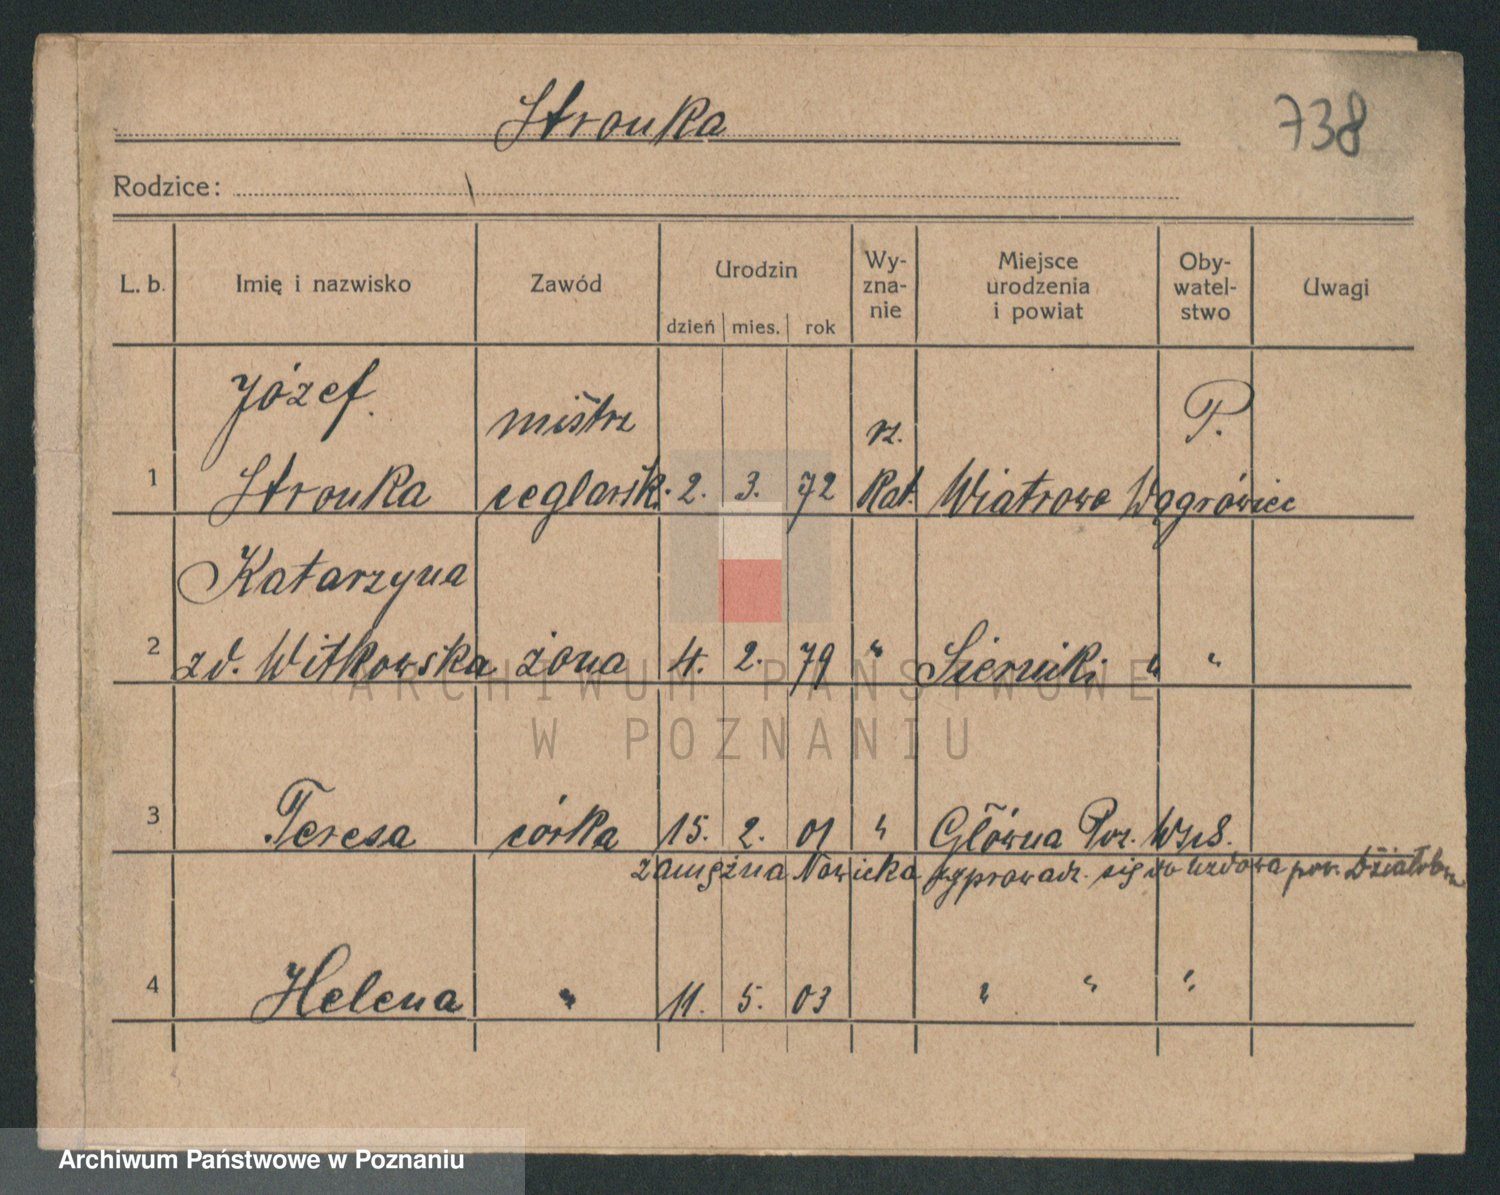 Stronka
738
Rodzice:
L. b. Imię i nazwisko Zawód Urodzin dzień mies. rok Wy- zna- nie Miejsce urodzenia i powiat Oby- watel- stwo Uwagi
Józef mistrz rz. P.
1 Stronka ceglarsk. 2. 3. 72 Kat. Wiatrowo Wągrówiec
Katarzyna
2 zd. Witkowska żona 4. 2. 79 " Sierniki " "
ARCHIWUM PAŃSTWOWE
W POZNANIU
3 Teresa córka 15. 2. 01 " Główna Poz. Wsch.
zamężna Nowicka wyprowadz. się do Uzdowa pow. Działdowo
4 Helena " 11. 5. 03 " " "
Archiwum Państwowe w Poznaniu